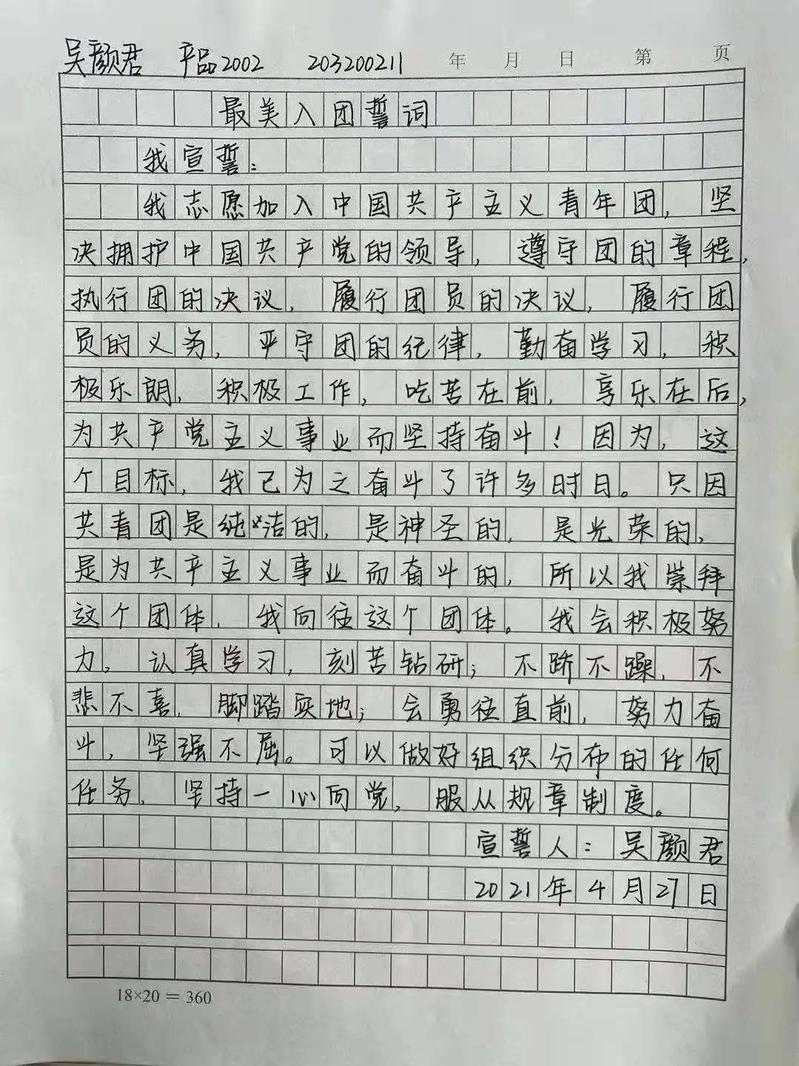 吴颜君 产品2002 203200211 年 月 日 第 页
最美入团誓词
我宣誓：
我志愿加入中国共产主义青年团，坚
决拥护中国共产党的领导，遵守团的章程，
执行团的决议，履行团员的决议，履行团
员的义务，严守团的纪律，勤奋学习，积
极乐朗，积极工作，吃苦在前，享乐在后，
为共产党主义事业而坚持奋斗！因为，这
个目标，我己为之奋斗了许多时日。只因
共青团是纯洁的，是神圣的，是光荣的，
是为共产主义事业而奋斗的，所以我崇拜
这个团体，我向往这个团体。我会积极努
力，认真学习，刻苦钻研；不骄不躁，不
悲不喜，脚踏实地；会勇往直前，努力奋
斗，坚强不屈。可以做好组织分布的任何
任务，坚持一心向党，服从规章制度。
宣誓人：吴颜君
2021年4月27日
18×20＝360